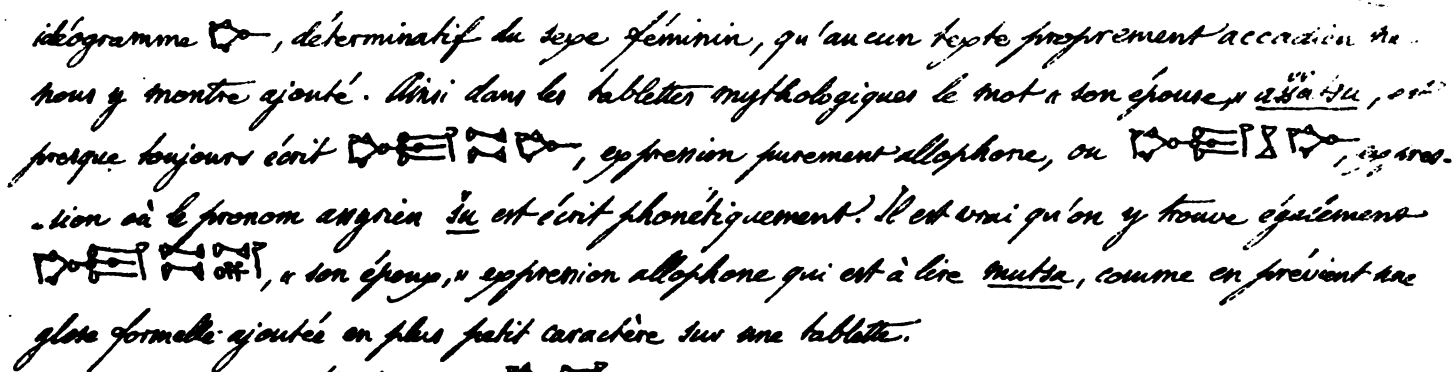 idéogramme 𒊩, déterminatif du sexe féminin, qu'aucun texte proprement accadien ne
nous y montre ajouté. Ainsi dans les tablettes mythologiques le mot « son épouse, » aššatsu, est
presque toujours écrit, expression purement allophone, ou, expres-
-sion où le pronom assyrien šu est écrit phonétiquement. Il est vrai qu'on y trouve également
, « son époux, » expression allophone qui est à lire mutsa, comme en prévient une
glose formelle ajoutée en plus petit caractère sur une tablette.